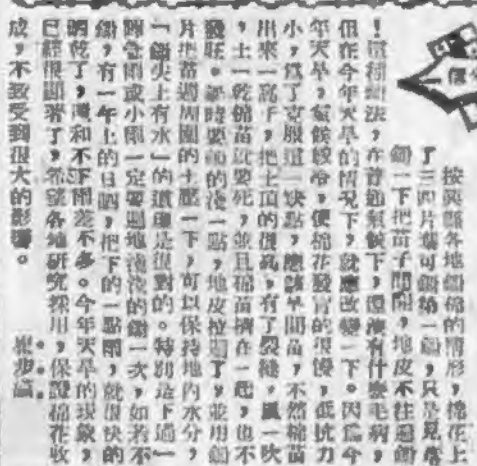 按莫縣各地鋤棉的情形，棉花上
了三四片葉可鋤第一鋤，只是見苗
鋤一下把苗子間開，地皮不往過鋤
！這種鋤法，在普通氣候下，還沒有什麼毛病，
但在今年天旱的情況下，就應改變一下。因爲今
年天旱，氣候較冷，使棉花發育的很慢，抵抗力
小，爲了克服這一缺點，應該早間苗，不然棉苗
出來一高下，把土頂的很高，有了裂縫，風一吹
，土一乾棉苗就要死，並且棉苗擠在一起，也不
發旺。鋤時要鋤的淺一點，地皮拉開了，並用鋤
片把苗週周圍的土壓一下，可以保持地內水分，
「鋤尖上有水」的道理是很對的。特別是下過一
陣急雨或小雨一定要過地淺淺的鋤一次，如若不
鋤，有一午上的日晒，把下的一點雨，就很快的
晒乾了，這和不下雨差不多。今年天旱的現象，
已經很顯著了，希望各地研究採用，保證棉花收
成，不致受到很大的影響。